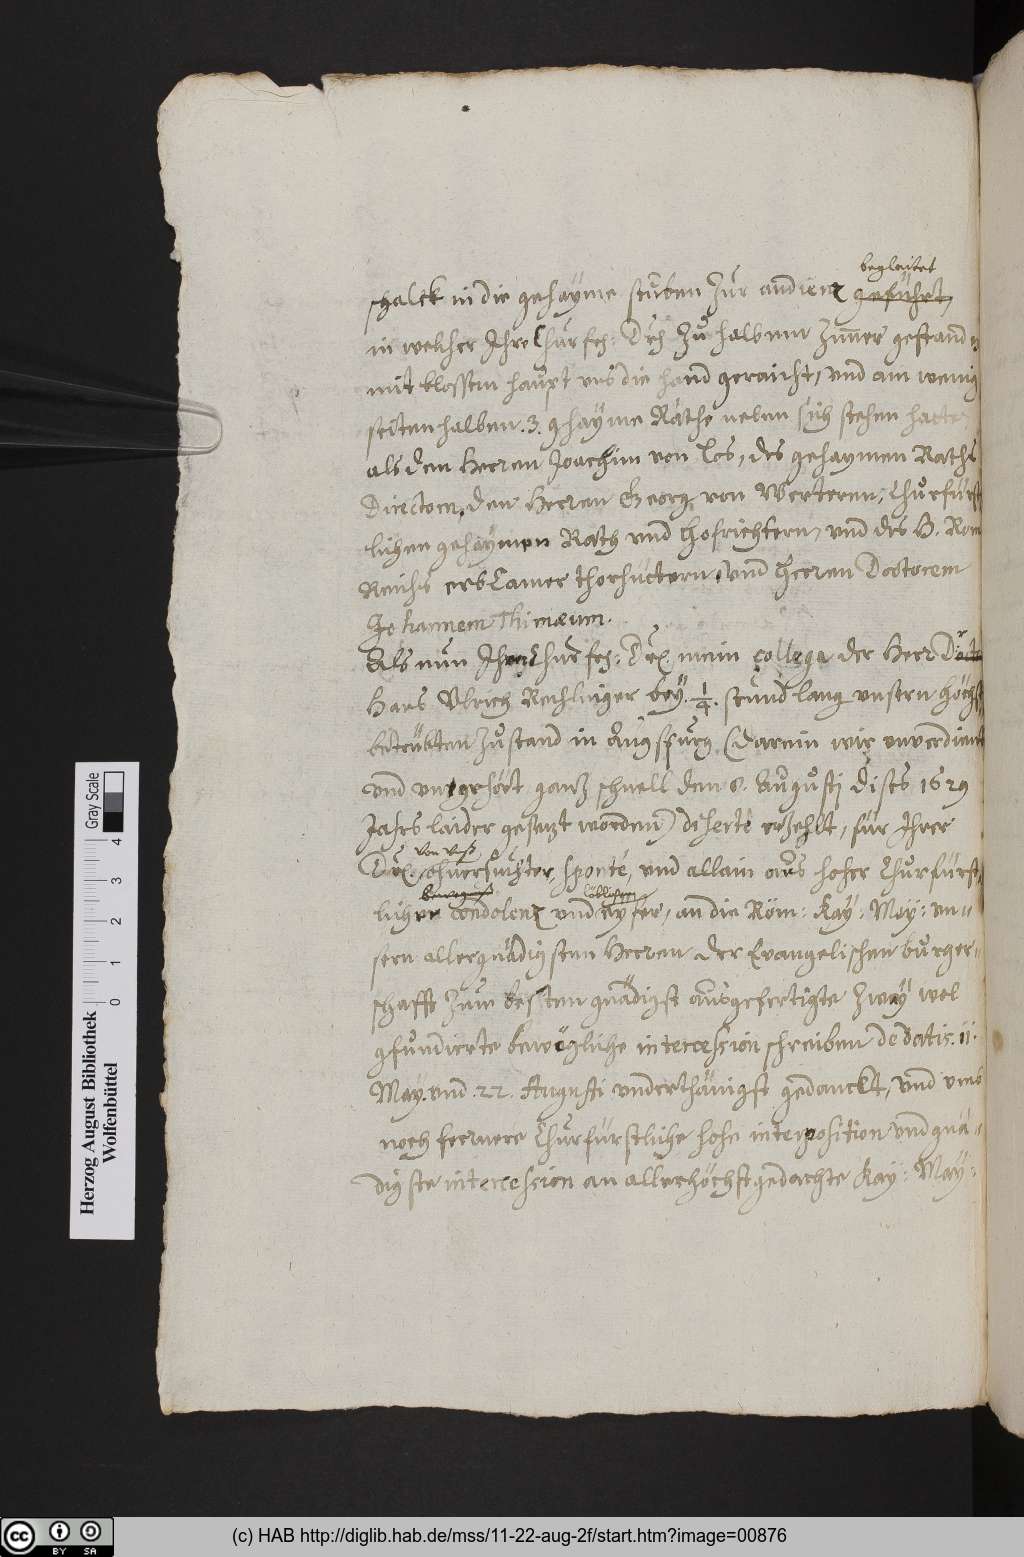 begleitet
schalck in die gehayme stuben zur audienz geführt,
in welcher Ihre Churfes: Drh zu halb nur Zimer gestanden
mit blossem haupt uns die hand geraicht, und am wenig
seiten halben .3. ghayme Räthe neben sich stehen hatte
als den Herren Joachim von Los, des gehaymen Raths
Directorn, den Herren Georg von Werteren, Churfürst
lichen gehaymen Rath und Hofrichtern, und des H. Röm
Reichs erb Camer thorhüttern, und Herren Doctorem
Johannem Thimæum.
Als nun Ihrer Churfes: Drl. mein collega der Herr Dr
Hans Ulrich Rechlinger bey 1/4. stund lang unsern höchst
betrübten Zustand in Augspurg (darein wir unverdient
und ungehört ganz schnell den 8. Augusti dises 1629
Jahrs laider gesezt worden) diserte erzehlt, für Ihrer
von uns
Drl. ohnersuchter, sponte, und allain aus hoher Churfürst,
löblichem
licher condolenz und eyfer, an die Röm: Kay: May: un=
sern allergnädigsten Herren der Evangelischen burger=
schafft zum besten gnädigst ausgefertigte zway wol
gfundierte bewögliche intercession schreiben de datis. 11.
May. und .22. Augusti underthänigst gedanckt, und umb
noch fernere Churfürstliche hohe interposition und gnä=
digste intercession an allerhöchstgedachte Kay: May:
Herzog August Bibliothek
Wolfenbüttel
Gray Scale
0 1 2 3 4
cc BY SA
(c) HAB http://diglib.hab.de/mss/11-22-aug-2f/start.htm?image=00876